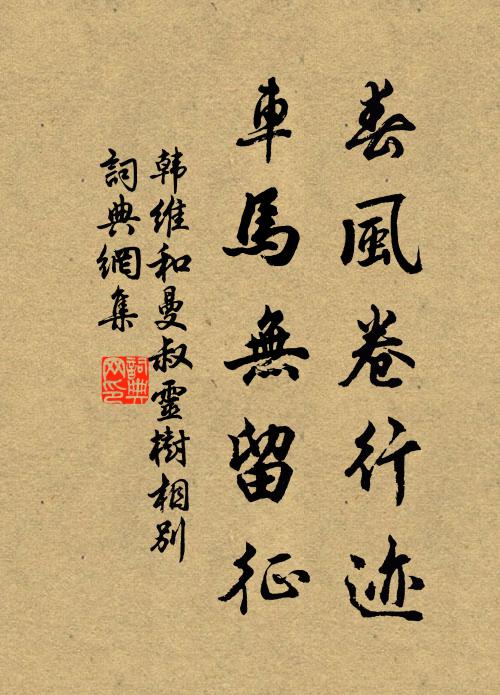 春風卷行迹
車馬無留征
韩維和曼叔靈樹相别
詞典網集
詞典
网印